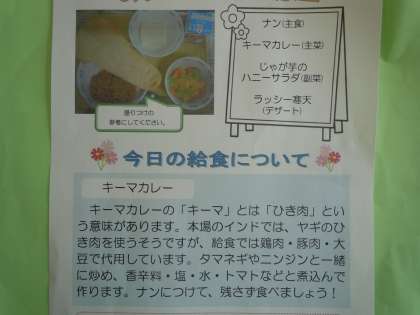 ナン(主食)
キーマカレー(主菜)
じゃが芋の
ハニーサラダ(副菜)
ラッシー寒天
(デザート)
盛りつけの
参考にしてください。
今日の給食について
キーマカレー
キーマカレーの「キーマ」とは「ひき肉」とい
う意味があります。本場のインドでは、ヤギのひ
き肉を使うそうですが、給食では鶏肉・豚肉・大
豆で代用しています。タマネギやニンジンと一緒
に炒め、香辛料・塩・水・トマトなどと煮込んで
作ります。ナンにつけて、残さず食べましょう！